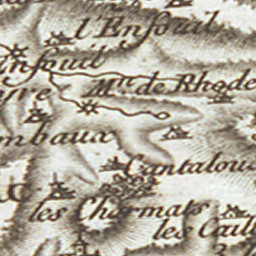 l'Enfouil
infouil
yre
Mⁿ. de Rhode
mbaux
Cantalou
x
les Charmats
les Caill